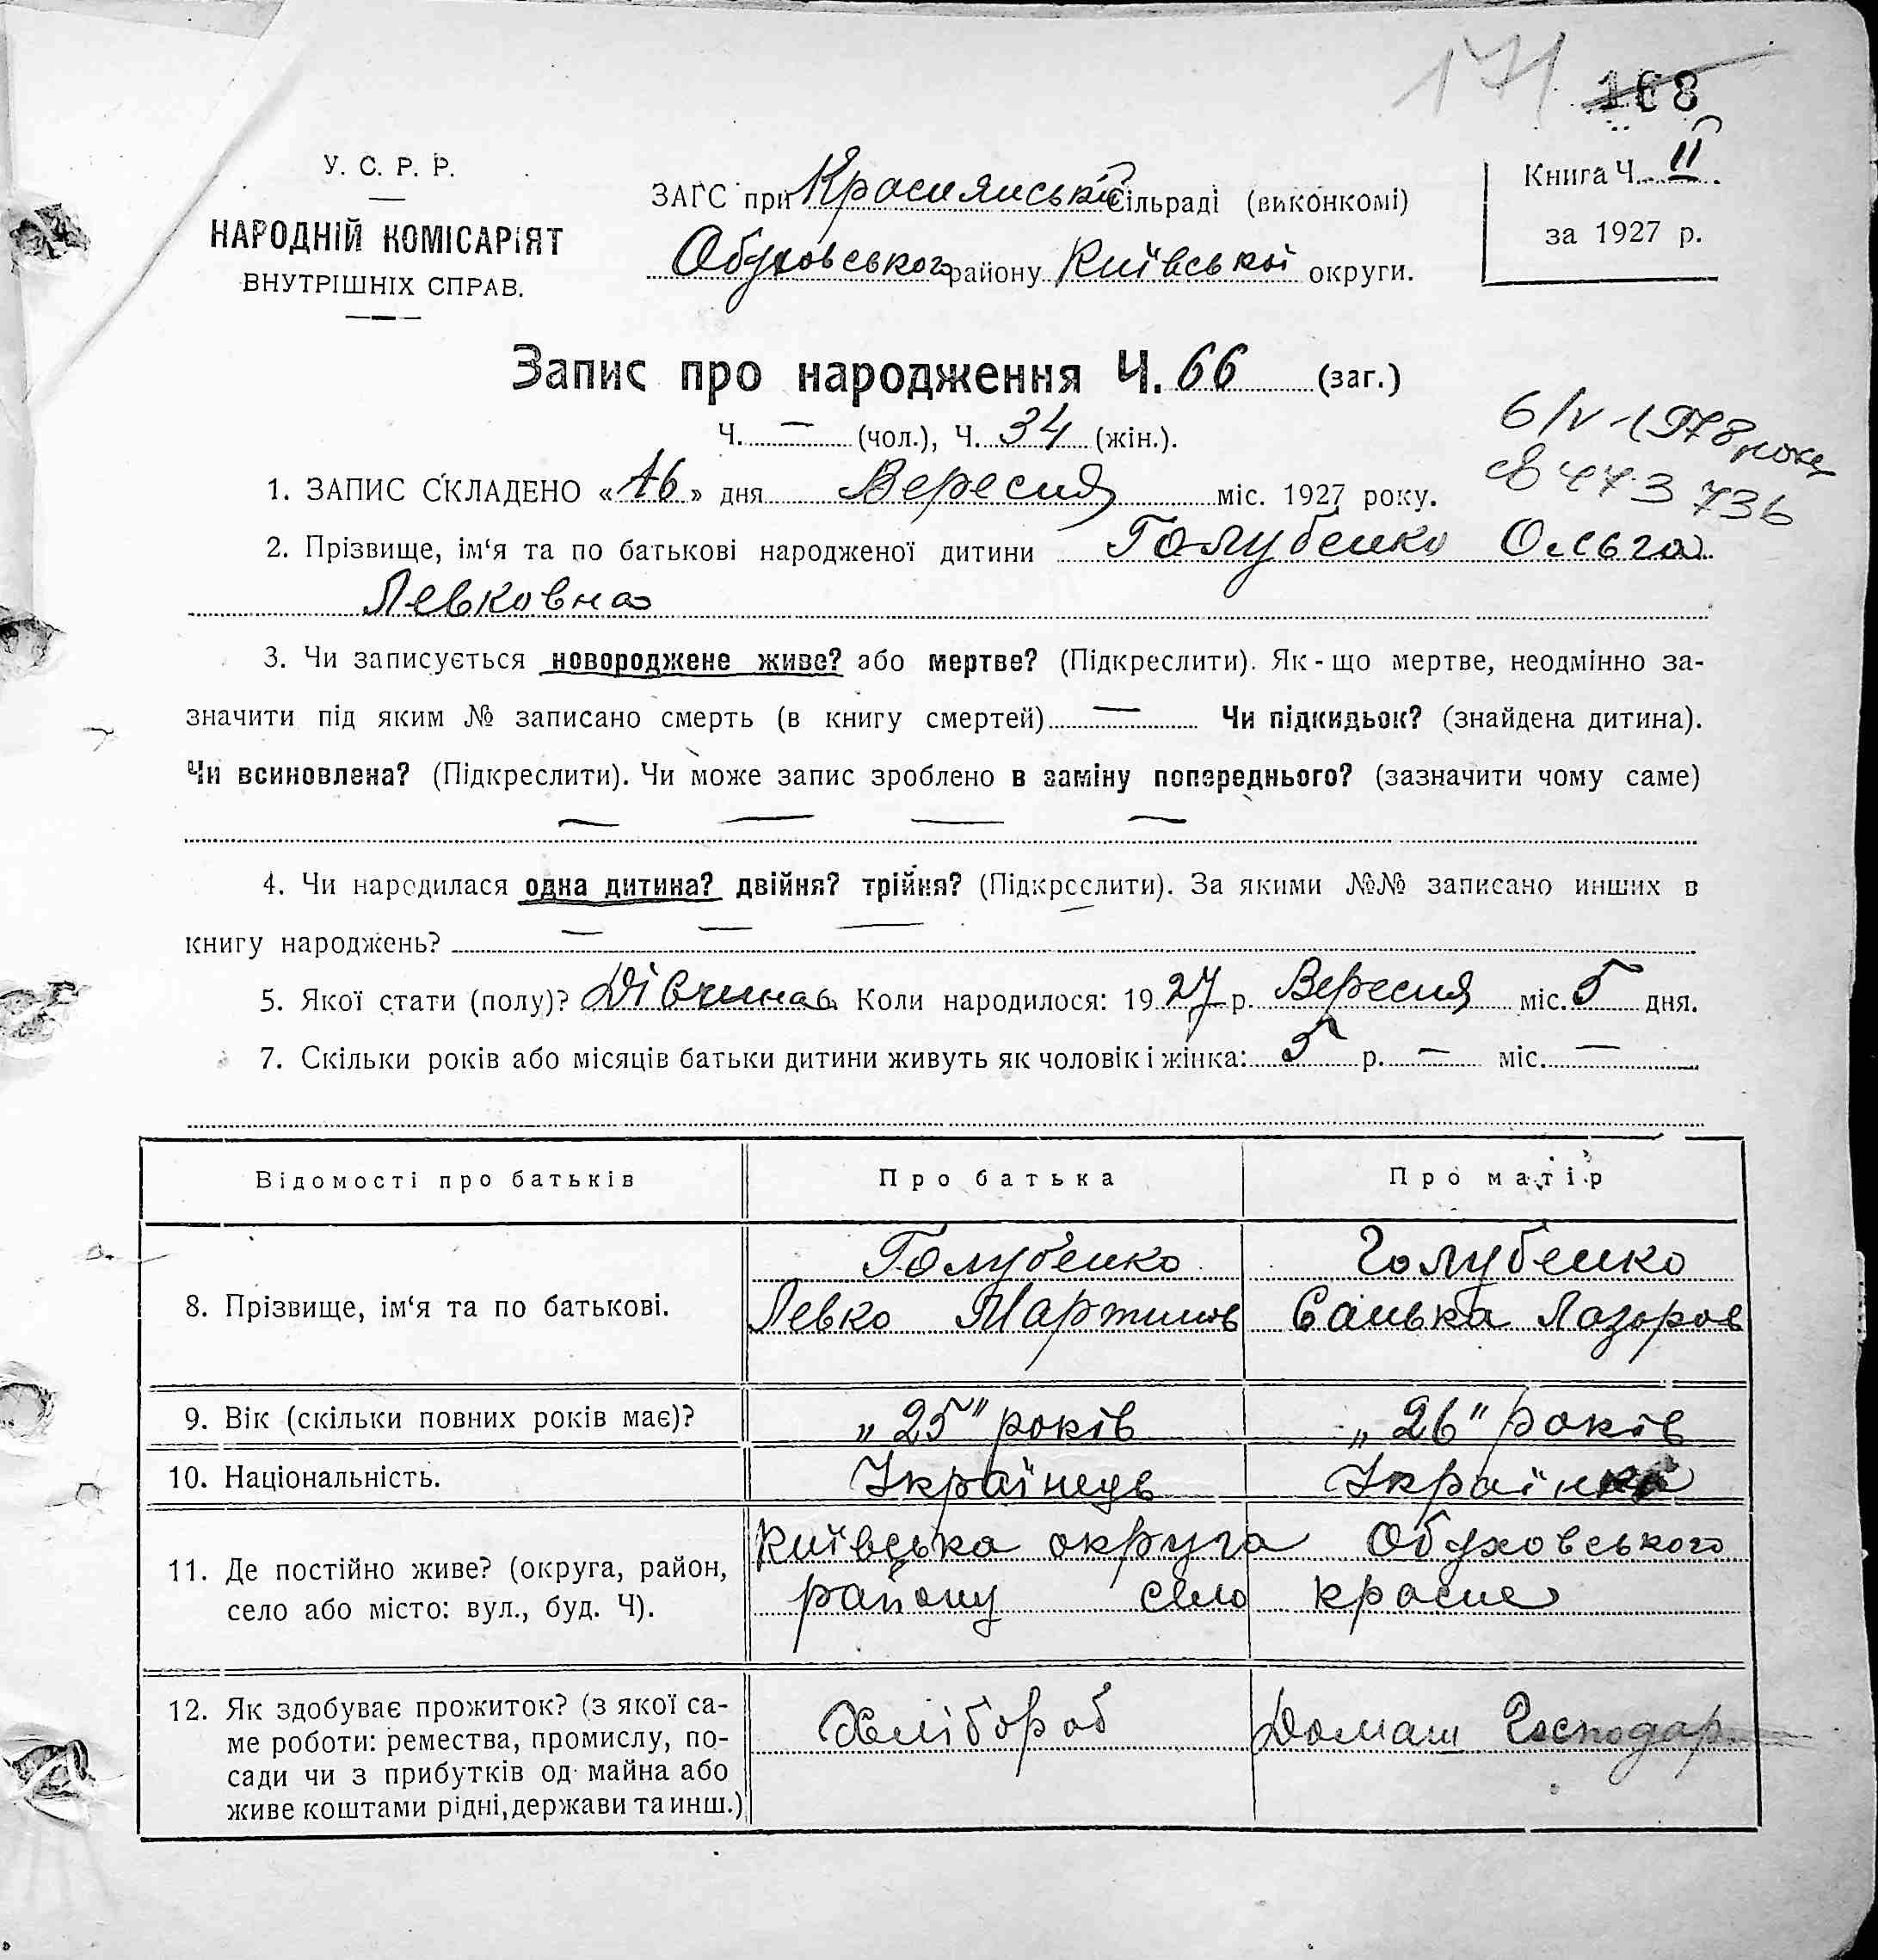 171 168
У. С. Р. Р.
НАРОДНІЙ КОМІСАРІЯТ
ВНУТРІШНІХ СПРАВ.
ЗАГС при Краснянській сільраді (виконкомі)
Обуховського району Київської округи.
Книга Ч. II
за 1927 р.
Запис про народження Ч. 66 (заг.)
Ч. — (чол.), Ч. 34 (жін.).
6/V-1978 року
443 736
1. ЗАПИС СКЛАДЕНО «16» дня Вересня міс. 1927 року.
2. Прізвище, ім‘я та по батькові народженої дитини Голубенко Ольга
Левковна
3. Чи записується новороджене живе? або мертве? (Підкреслити). Як-що мертве, неодмінно за-
значити під яким № записано смерть (в книгу смертей) — Чи підкидьок? (знайдена дитина).
Чи всиновлена? (Підкреслити). Чи може запис зроблено в заміну попереднього? (зазначити чому саме)
— — — —
4. Чи народилася одна дитина? двійня? трійня? (Підкреслити). За якими №№ записано инших в
книгу народжень? — — —
5. Якої стати (полу)? Дівчина Коли народилося: 1927 р. Вересня міс. 5 дня.
7. Скільки років або місяців батьки дитини живуть як чоловік і жінка: 5 р. — міс. —
Відомості про батьків Про батька Про матір
Голубенко Голубенко
8. Прізвище, ім‘я та по батькові. Левко Мартинов Санька Лазоров
9. Вік (скільки повних років має)? „25" років „26" років
10. Національність. Українець Українка
11. Де постійно живе? (округа, район,
село або місто: вул., буд. Ч).
Київська округа Обуховського
району село красне
12. Як здобуває прожиток? (з якої са-
ме роботи: ремества, промислу, по-
сади чи з прибутків од майна або
живе коштами рідні, держави та инш.)
Хлібороб Домаш Господар